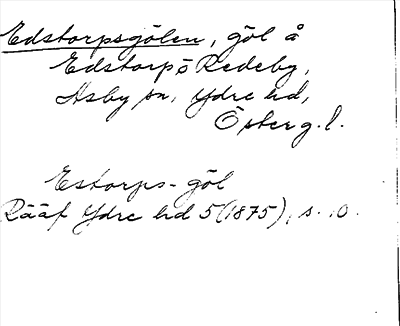 Edstorpsgölen, göl å
Edstorp o Redeby,
Asby sn, Ydre hd,
Österg. l.
Estorps-göl
Rääf Ydre hd 5 (1875), s. 10.